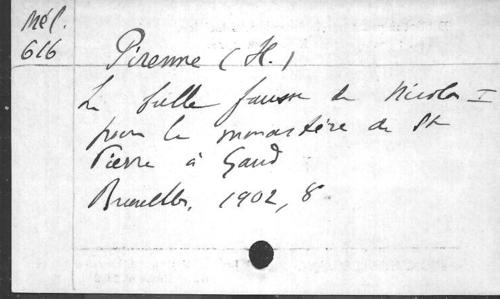 Mél.
616
Pirenne (H.)
La bulle fausse de Nicolas I
pour le monastère de St
Pierre à Gand
Bruxelles, 1902, 8°